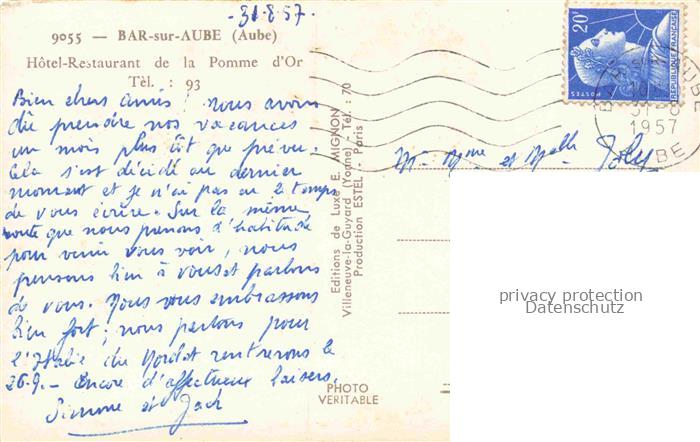 -31-8-57-
9055 — BAR-sur-AUBE (Aube)
Hôtel-Restaurant de la Pomme d'Or
Tèl. : 93
Bien chers amis, nous avons
dû prendre nos vacances
un mois plus tôt que prévu.
Cela s'est décidé au dernier
moment et je n'ai pas eu le temps
de vous écrire. Sur la même
route que nous prenons d'habitude
pour venir vous voir, nous
pensons bien à vous et parlons
de vous. Nous vous embrassons
bien fort; nous partons pour
l'Italie du Nord et rentrerons le
26.9.- Encore d'affectueux baisers.
Simone et Jack
Editions de Luxe E. MIGNON
Villeneuve-la-Guyard (Yonne) - Tél. : 70
Production ESTEL - Paris
PHOTO
VERITABLE
20F
POSTES
REPUBLIQUE FRANÇAISE
1957
AUBE
Mr Mme et Melle
privacy protection
Datenschutz